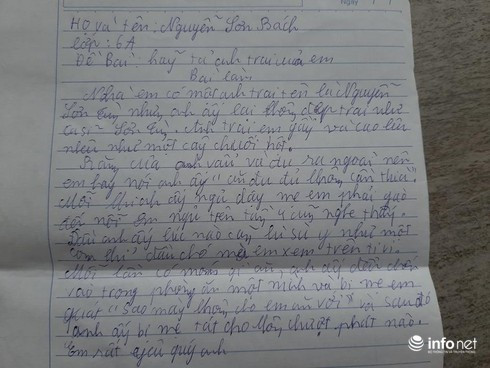 Ngày
Họ và tên: Nguyễn Sơn Bách
Lớp: 6A
Đề Bài: hãy tả anh trai của em
Bài làm
Nhà em có một anh trai tên là Nguyễn
Sơn Tùng nhưng anh ấy lại không đẹp trai như
ca sĩ Sơn Tùng. Anh trai em gầy và cao lêu
nghêu như một cây chuối hột.
Răng của anh vẩu và đu ra ngoài nên
em hay nói anh ấy "ăn đu đủ không cần thìa".
Mỗi khi anh ấy ngủ dậy mẹ em phải gào
ầm ngụ trên tầng 4 cũng nghe thấy.
anh ấy lúc nào cũng lù sù y như một
con chó mẹ em xem trên tivi.
Mỗi lần có món gì ăn, anh ấy đều
vào trong phòng ăn một mình và bị mẹ em
quát "Sao mày không cho em ăn với" và sau đó
anh ấy bị mẹ tát cho không trượt phát nào.
Em rất yêu quý anh
infonet